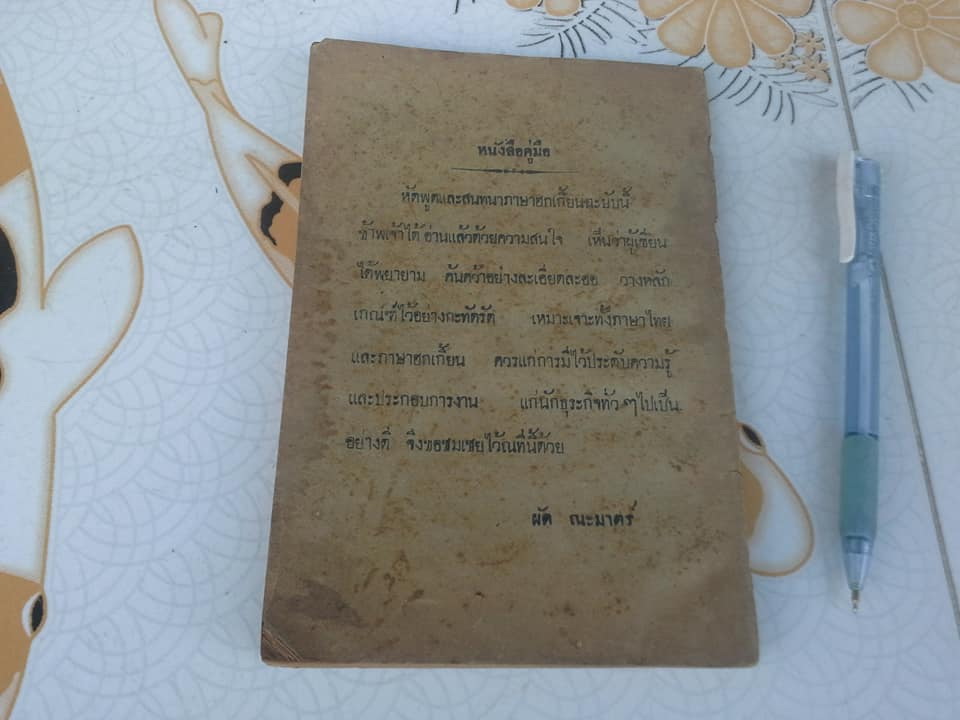 หนังสือคู่มือ
หัดพูดและสนทนาภาษาฮกเกี้ยนฉะบับนี้
ข้าพเจ้าได้อ่านแล้วด้วยความสนใจ เห็นว่าผู้เขียน
ได้พยายาม ค้นคว้าอย่างละเอียดละออ วางหลัก
เกณฑ์ไว้อย่างกะทัดรัด เหมาะเจาะทั้งภาษาไทย
และภาษาฮกเกี้ยน ควรแก่การมีไว้ประดับความรู้
และประกอบการงาน แก่นักธุระกิจทั่วๆไปเป็น
อย่างดี จึงขอชมเชยไว้ณที่นี้ด้วย
ผัด ณะมาตร์